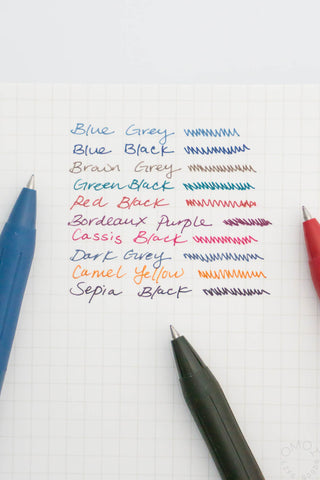 Blue Grey
Blue Black
Brain Grey
Green Black
Red Black
Bordeaux Purple
Cassis Black
Dark Grey
Camel Yellow
Sepia Black